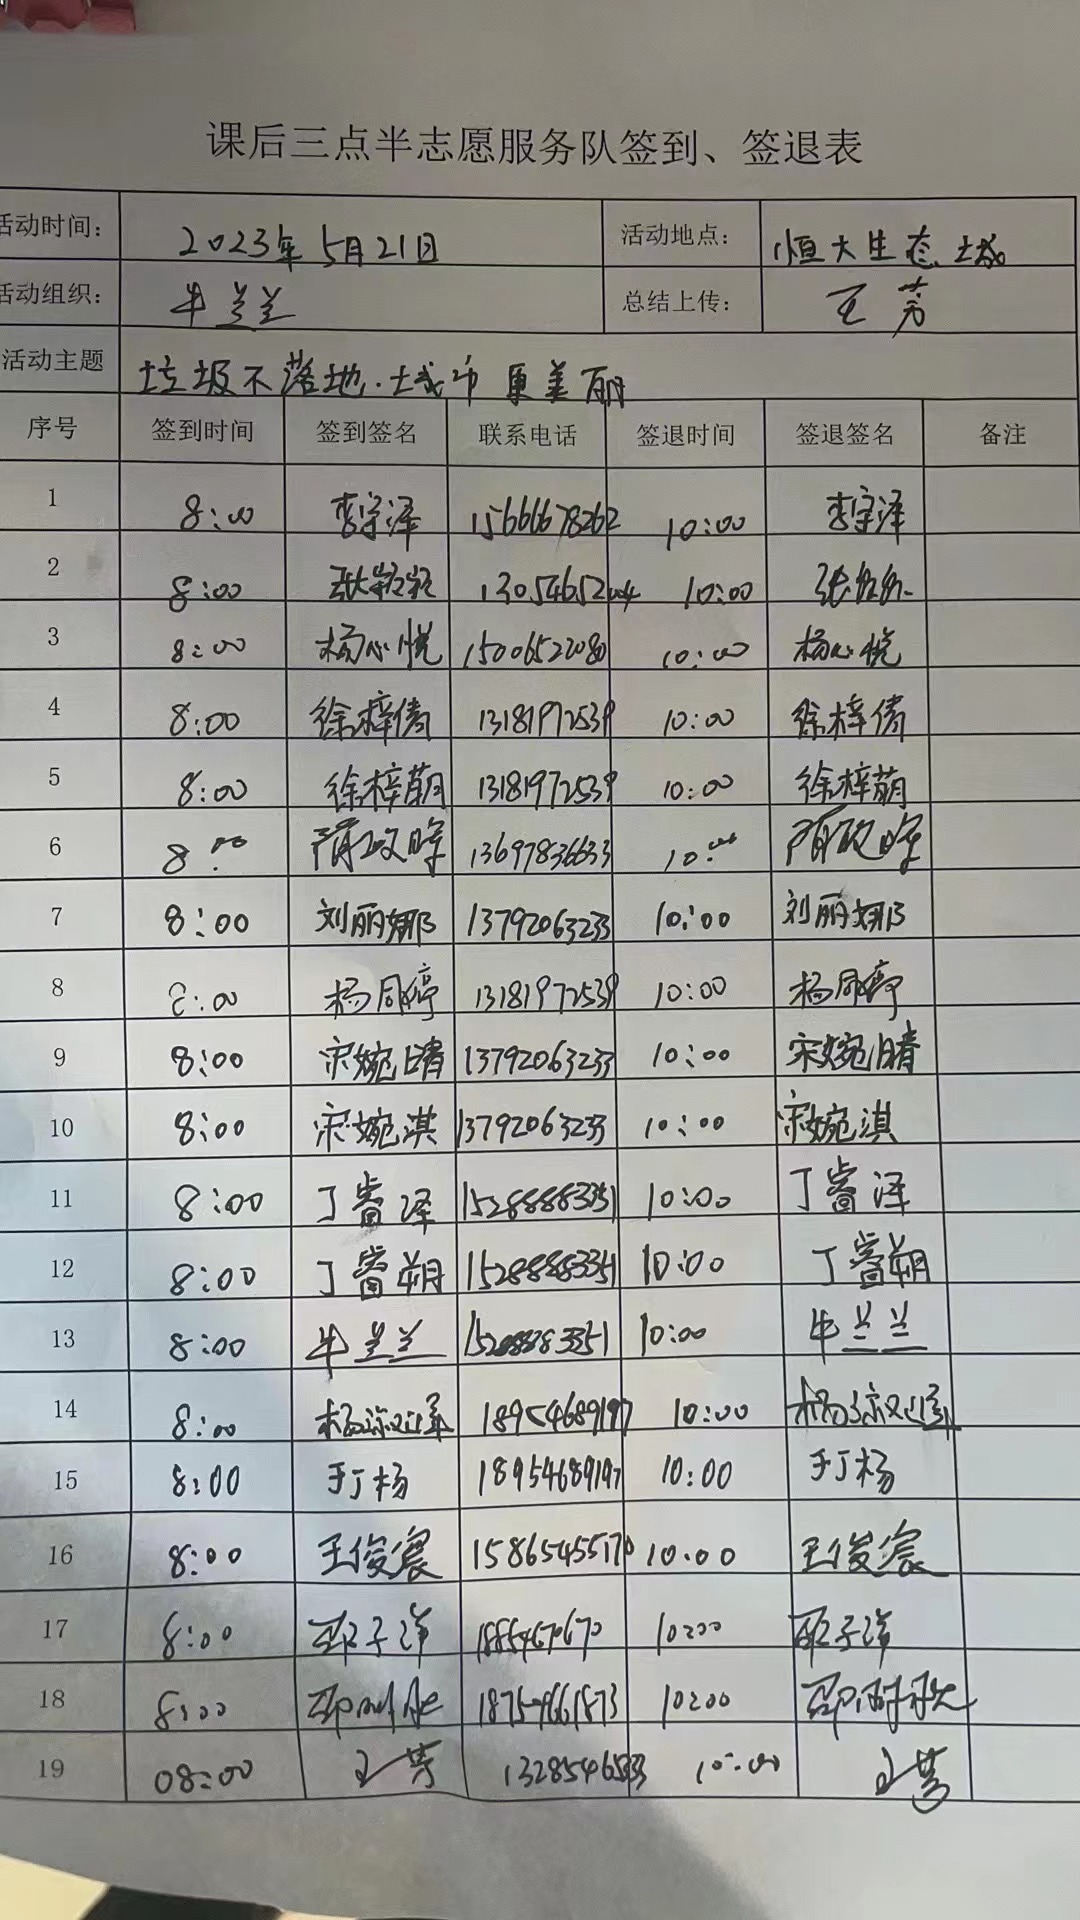 课后三点半志愿服务队签到、签退表
活动时间： 2023年5月21日 活动地点： 恒大生态城
活动组织： 牛兰兰 总结上传： 王芳
活动主题 垃圾不落地·城市更美丽
序号 签到时间 签到签名 联系电话 签退时间 签退签名 备注
1 8:00 李宇泽 15666678262 10:00 李宇泽
2 8:00 10:00
3 8:00 杨心悦 15006522080 10:00 杨心悦
4 8:00 徐梓倩 13181972539 10:00 徐梓倩
5 8:00 徐梓萌 13181972539 10:00 徐梓萌
6 8:00 13697836633 10:00
7 8:00 刘丽娜 13792063233 10:00 刘丽娜
8 8:00 13181972539 10:00
9 8:00 宋婉晴 13792063233 10:00 宋婉晴
10 8:00 宋婉淇 13792063233 10:00 宋婉淇
11 8:00 丁睿泽 15288883351 10:00 丁睿泽
12 8:00 丁睿朔 15288883351 10:00 丁睿朔
13 8:00 牛兰兰 10:00 牛兰兰
14 8:00 18954689197 10:00
15 8:00 于丁杨 18954689197 10:00 于丁杨
16 8:00 王俊宸 15865455170 10:00 王俊宸
17 8:00 10:00
18 8:00 10:00
19 08:00 王芳 10:00 王芳